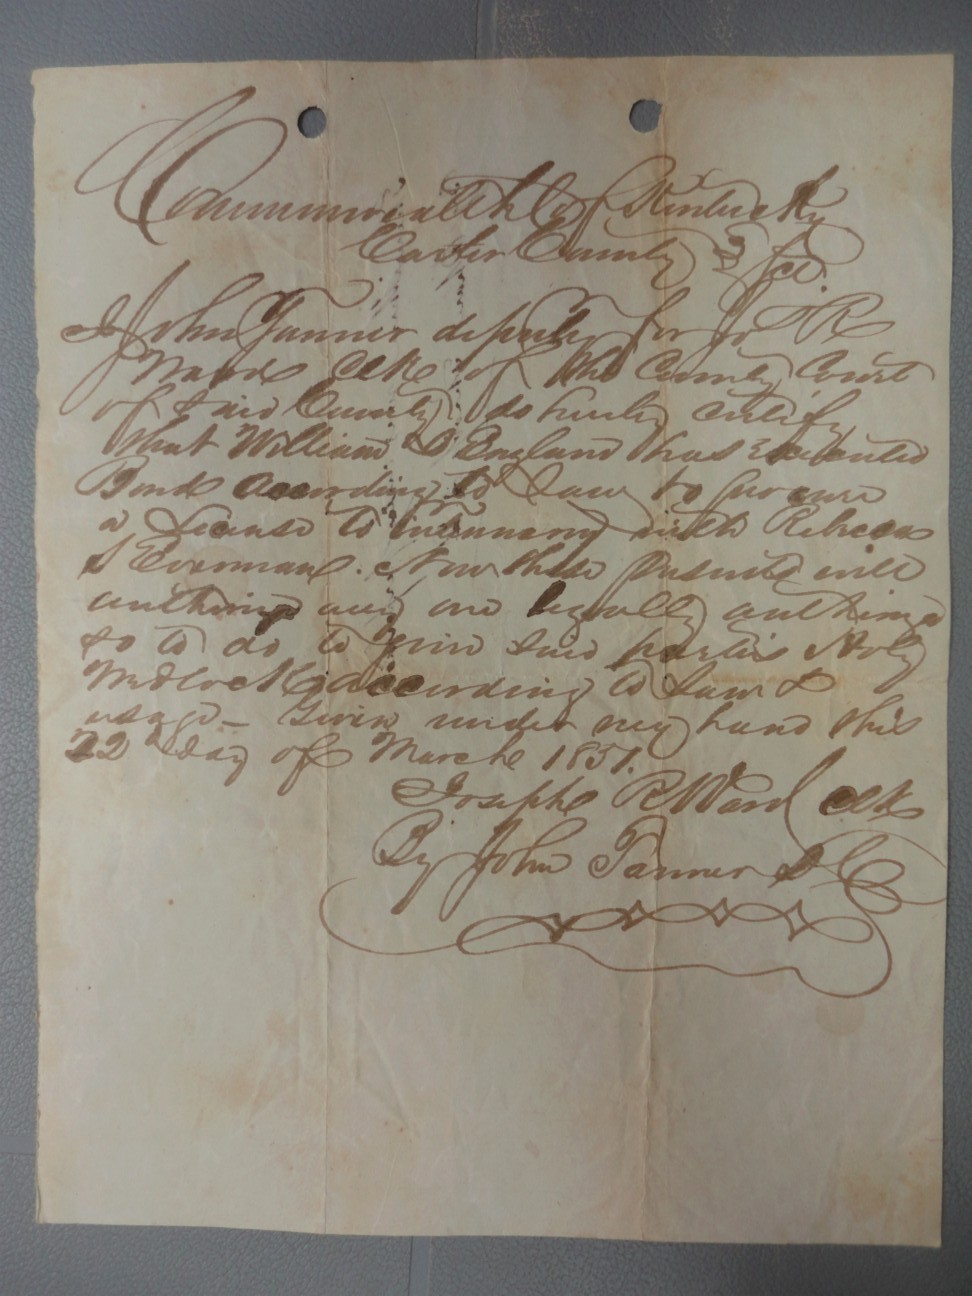 Commonwealth of Kentucky
Carter County Sct.
I John Tanner deputy for Jos R
Wards Clk of the County Court
of Said County do hereby certify
that William D England has Executed
Bond according to Law to procure
a License to intermarry with Rebecca
S Everman. Now these presents will
authorize any one legally authorized
so to do to Join said parties Holy
Wedlock according to Law &
usage - Given under my hand this
22nd day of March 1851.
Joseph R Ward Clk
By John Tanner D C